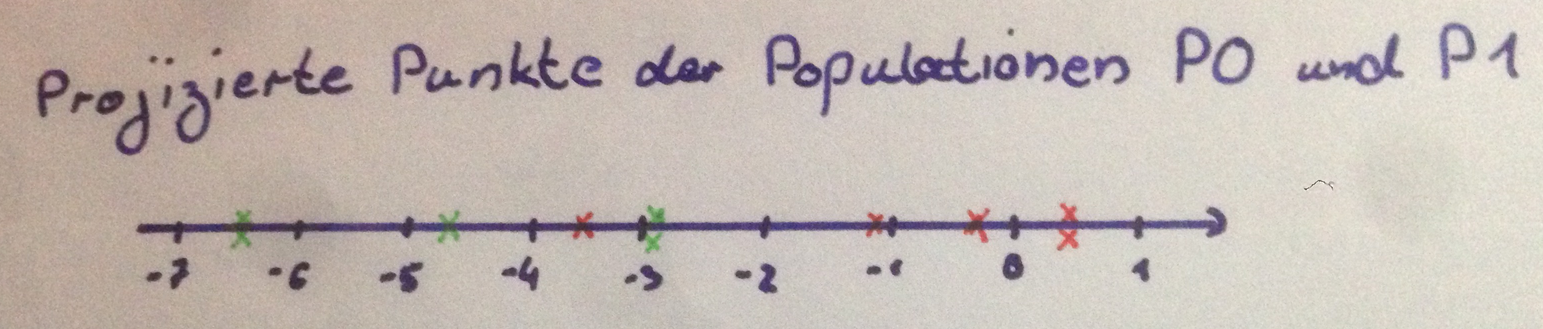 Projizierte Punkte der Populationen P0 und P1
-7 -6 -5 -4 -3 -2 -1 0 1